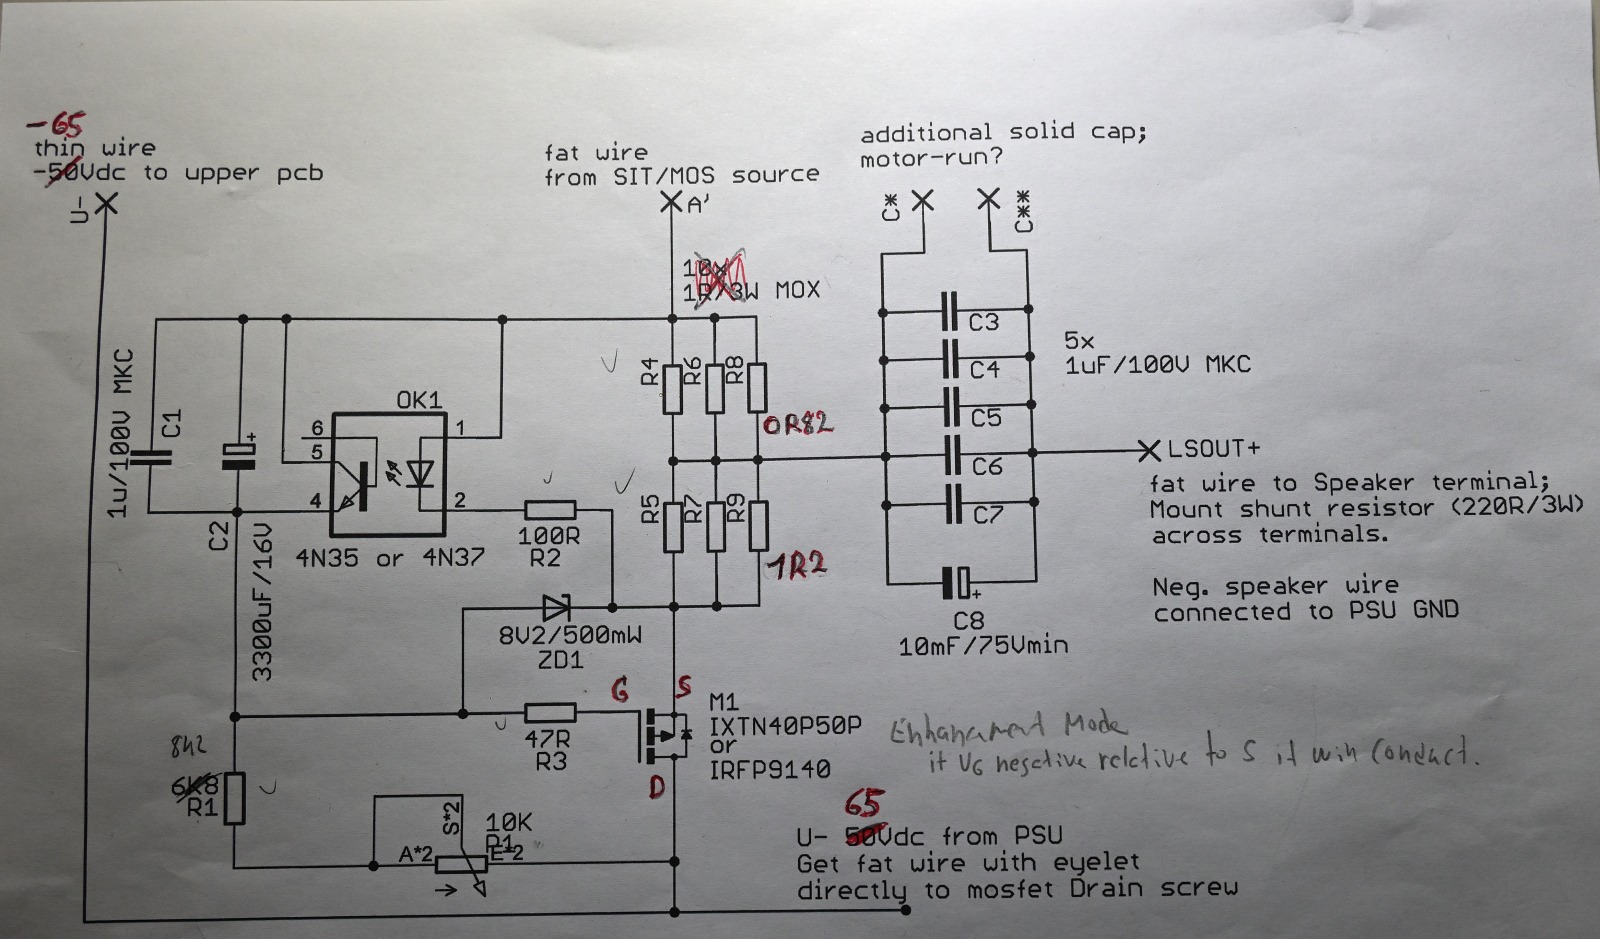 -65
thin wire
-50Vdc to upper pcb
U-
fat wire
from SIT/MOS source
A'
additional solid cap;
motor-run?
C*
C**
10x
1R/3W MOX
1u/100V MKC
C1
C2
3300uF/16V
OK1
6
5
4
1
2
4N35 or 4N37
100R
R2
R4
R6
R8
0R82
R5
R7
R9
1R2
8V2/500mW
ZD1
C3
C4
C5
C6
C7
5x
1uF/100V MKC
C8
10mF/75Vmin
LSOUT+
fat wire to Speaker terminal;
Mount shunt resistor (220R/3W)
across terminals.
Neg. speaker wire
connected to PSU GND
G
S
D
47R
R3
M1
IXTN40P50P
or
IRFP9140
Enhancement Mode
if VG negative relative to S it will conduct.
8k2
6K8
R1
S*2
10K
P1
A*2
E*2
65
U- 50Vdc from PSU
Get fat wire with eyelet
directly to mosfet Drain screw